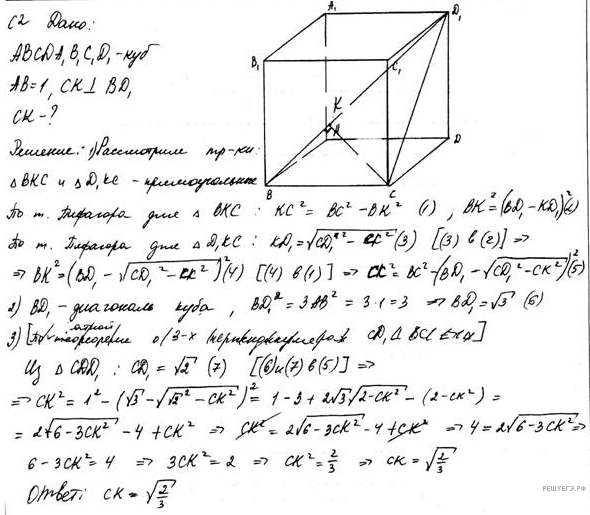 C2 Дано:
ABCDA₁B₁C₁D₁ - куб
AB=1, CK⊥ BD₁
CK - ?
Решение: 1) Рассмотрим тр-ки:
△BKC и △D₁KC - прямоугольные
A₁
D₁
B₁
C₁
K
A
D
B
C
По т. Пифагора для △ BKC : KC² = BC² - BK² (1) , BK² = (BD₁ - KD₁)² (2)
По т. Пифагора для △ D₁KC : KD₁ = √(CD₁² - CK²) (3) [(3) в (2)] ⇒
⇒ BK² = (BD₁ - √(CD₁² - CK²))² (4) [(4) в (1)] ⇒ CK² = BC² - (BD₁ - √(CD₁² - CK²))² (5)
2) BD₁ - диагональ куба, BD₁² = 3AB² = 3·1 = 3 ⇒ BD₁ = √3 (6)
3) [По теореме о 3-х перпендикулярах CD₁ ⊥ BC]
Из △ CDD₁ : CD₁ = √2 (7) [(6) и (7) в (5)] ⇒
⇒ CK² = 1² - (√3 - √(√2² - CK²))² = 1 - 3 + 2√3 √(2-CK²) - (2 - CK²) =
= 2√(6 - 3CK²) - 4 + CK² ⇒ CK² = 2√(6 - 3CK²) - 4 + CK² ⇒ 4 = 2√(6 - 3CK²) ⇒
6 - 3CK² = 4 ⇒ 3CK² = 2 ⇒ CK² = 2/3 ⇒ CK = √(2/3)
Ответ: CK = √(2/3)
РЕШУЕГЭ.РФ